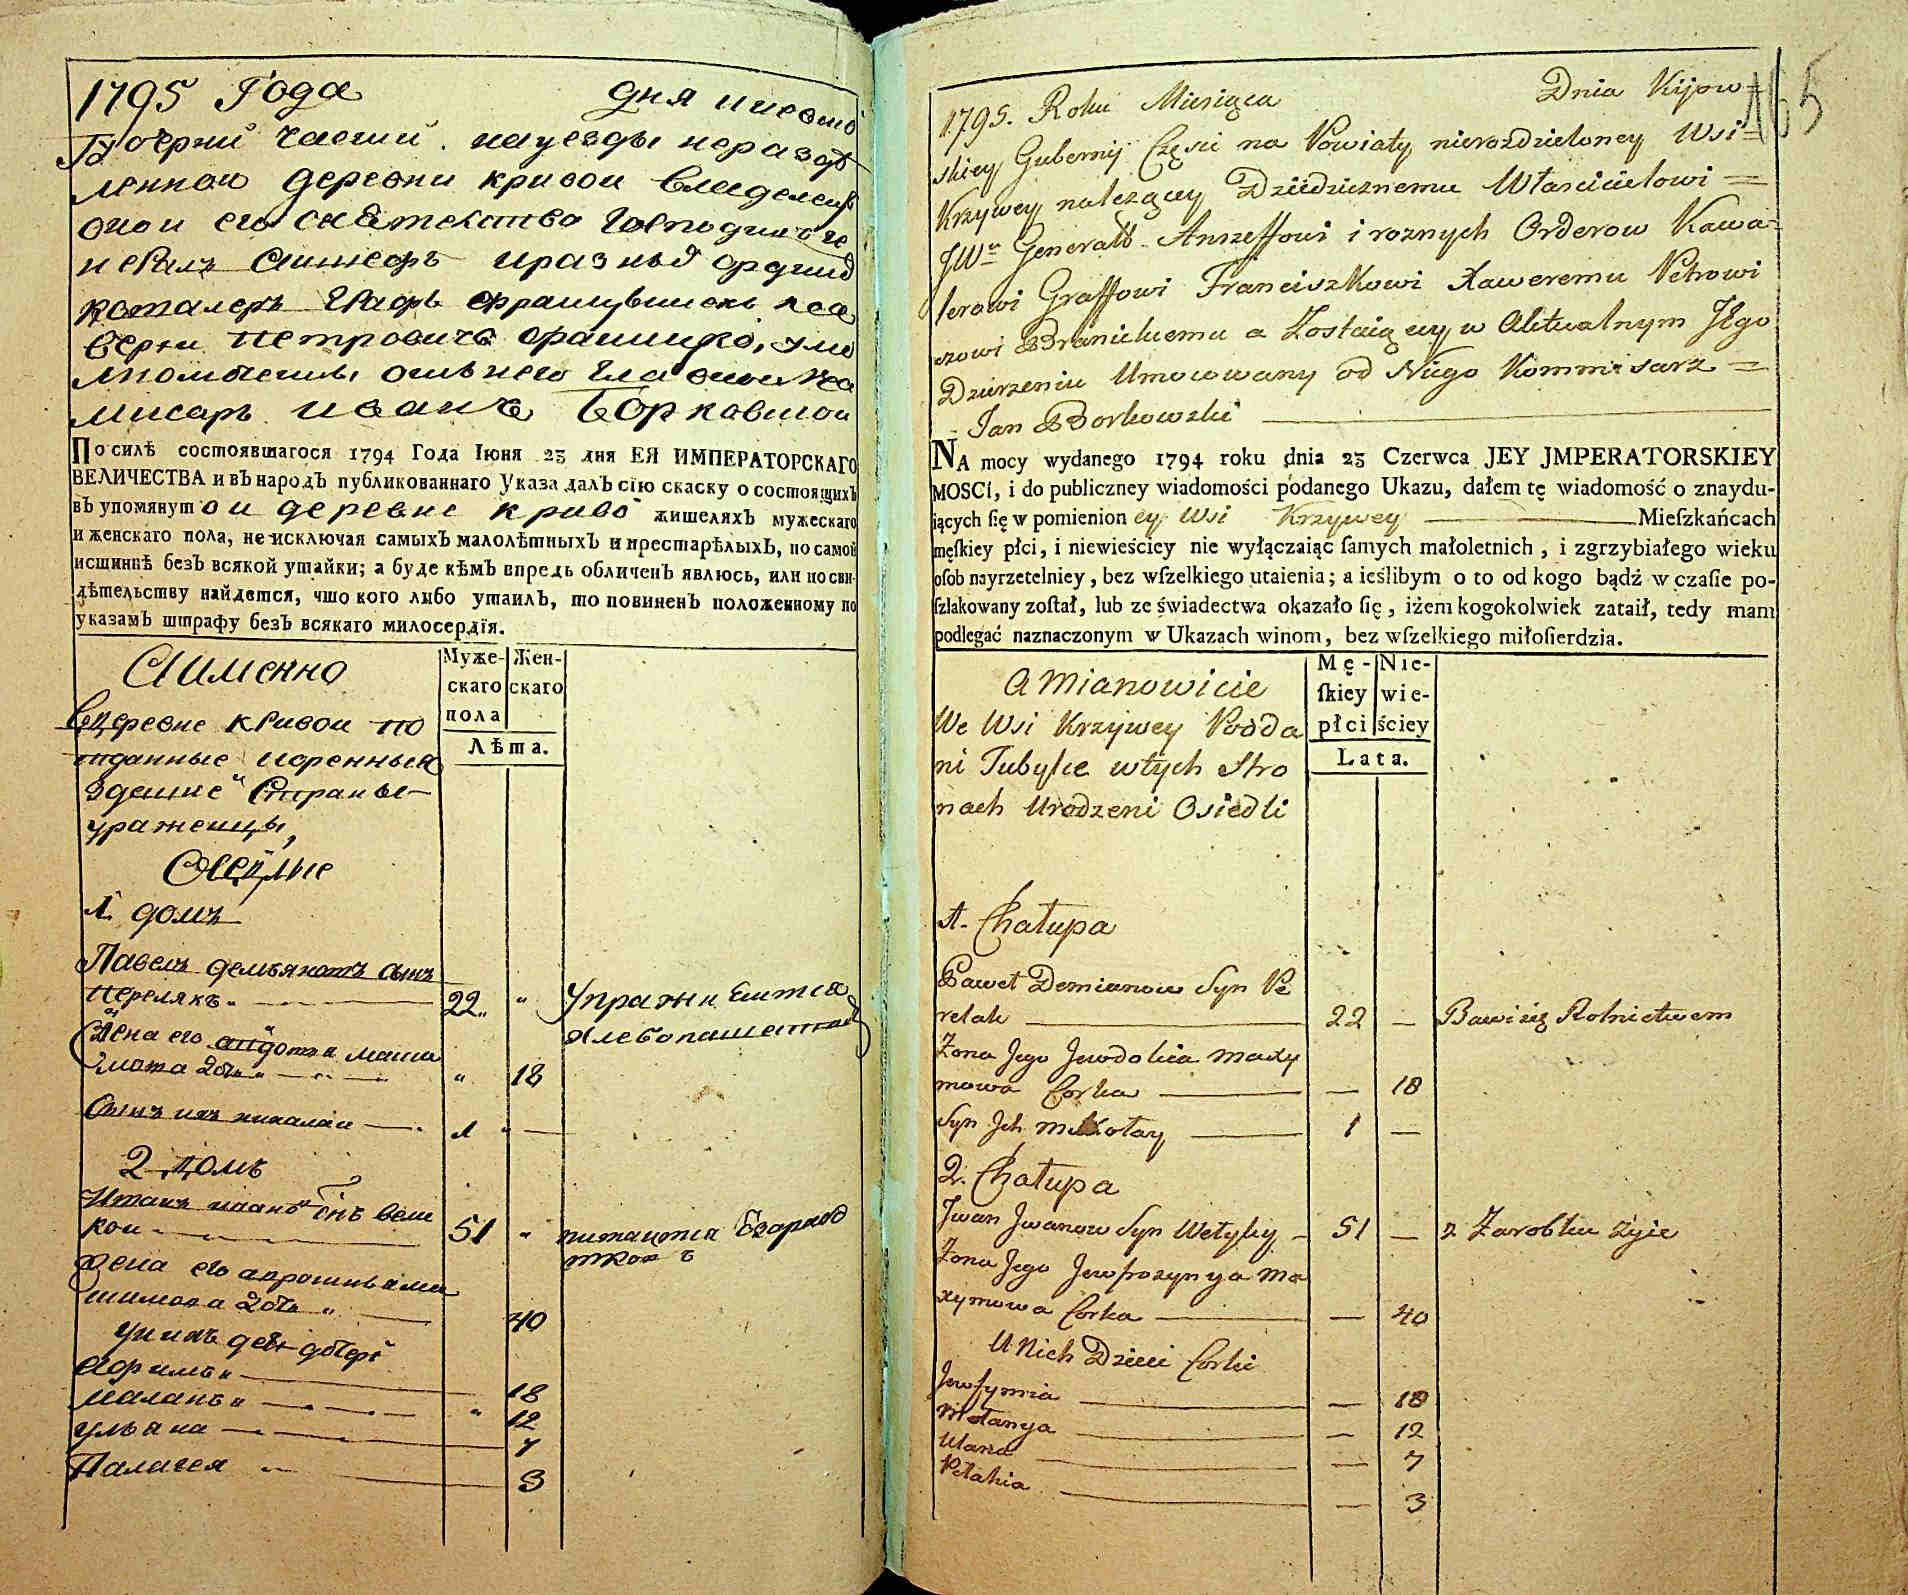 1795 Года дня киевско
Губерни части на уезды неразде
ленной деревни кривой владелец
оной его сиятельство господин ге
нералъ аншефъ и разных ордено
кавалеръ Графъ францишекъ кса
верий петровичъ браницко,
комисаръ иванъ Борковский
По силѣ состоявшагося 1794 Года Іюня 23 дня ЕЯ ИМПЕРАТОРСКАГО
ВЕЛИЧЕСТВА и вЪ народЪ публикованнаго Указа далЪ сію скаску о состоящихЪ
вЪ упомянутой деревне криво жителяхЪ мужескаго
и женскаго пола, не исключая самыхЪ малолѣтныхЪ и престарѣлыхЪ, по самой
истиннѣ безЪ всякой утайки; а буде кѣмЪ впредь обличенЪ явлюсь, или по сви-
дѣтельству найдется, что кого либо утаилЪ, то повиненЪ положенному по
указамЪ штрафу безЪ всякаго милосердія.
Аименно
Муже-
скаго
пола
Жен-
скаго
Лѣта.
вдеревне кривой по
тданные коренныя
здешние Стране
уроженцы,
Оседлые
1. домъ
Павелъ демьяновъ сынъ
перелякъ 22 „ упражняется
хлебопашеством
Жена его авдотья макси
мова дочь „ 18
Сынъ ихъ николай 1 „
2 домъ
Иванъ ивановъ сынъ вели
кой 51 „ питается Ззараб
отковъ
жена его апросинья ма
ксимова дочь 40
у них дети дочери
Афимья 18
маланья „ 12
ульяна 7
Палагея 3
165
1795. Roku Miesiąca Dnia Kijow=
skiey Gubernij Częsci na Powiaty nierozdzieloney Wsi=
Krzywey nalezącey Dziedzicznemu Włascicielowi =
JWu Generałł Anszeffowi i roznych Orderow Kawa=
lerowi Graffowi Franciszkowi Xaweremu Petrowi
czowi Branickiemu a Zostaiącey w Aktualnym JEgo
Dzierzeniu Umocowany od Niego Kommisarz =
Jan Borkowski
NA mocy wydanego 1794 roku dnia 23 Czerwca JEY JMPERATORSKIEY
MOSCI, i do publiczney wiadomości podanego Ukazu, dałem tę wiadomość o znaydu-
iących ſię w pomienioney Wsi Krzywey Mieſzkańcach
męſkiey płci, i niewieściey nie wyłączaiąc ſamych małoletnich, i zgrzybiałego wieku
oſob nayrzetelniey, bez wſzelkiego utaienia; a ieślibym o to od kogo bądź w czaſie po-
ſzlakowany zoſtał, lub ze świadectwa okazało ſię, iżem kogokolwiek zataił, tedy mam
podlegać naznaczonym w Ukazach winom, bez wſzelkiego miłoſierdzia.
A Mianowicie
Mę-
ſkiey
płci
Nie-
wie-
ściey
Lata.
We Wsi Krzywey Podda
ni Tubylce wtych Stro
nach Urodzeni Osiedli
1. Chałupa
Paweł Demianow Syn Pe
relak 22 — Bawi się Rolnictwem
Zona Jego Jewdokia Maxy
mowa Corka — 18
Syn Jch Mikołay 1 —
2. Chałupa
Jwan Jwanow Syn Wełyky 51 — z Zarobku żyie
Zona Jego Jewfrozynya Ma
xymowa Corka — 40
U Nich Dzieci Corki
Jewfymia — 18
Mełanya — 12
Ulana — 7
Pełahia — 3